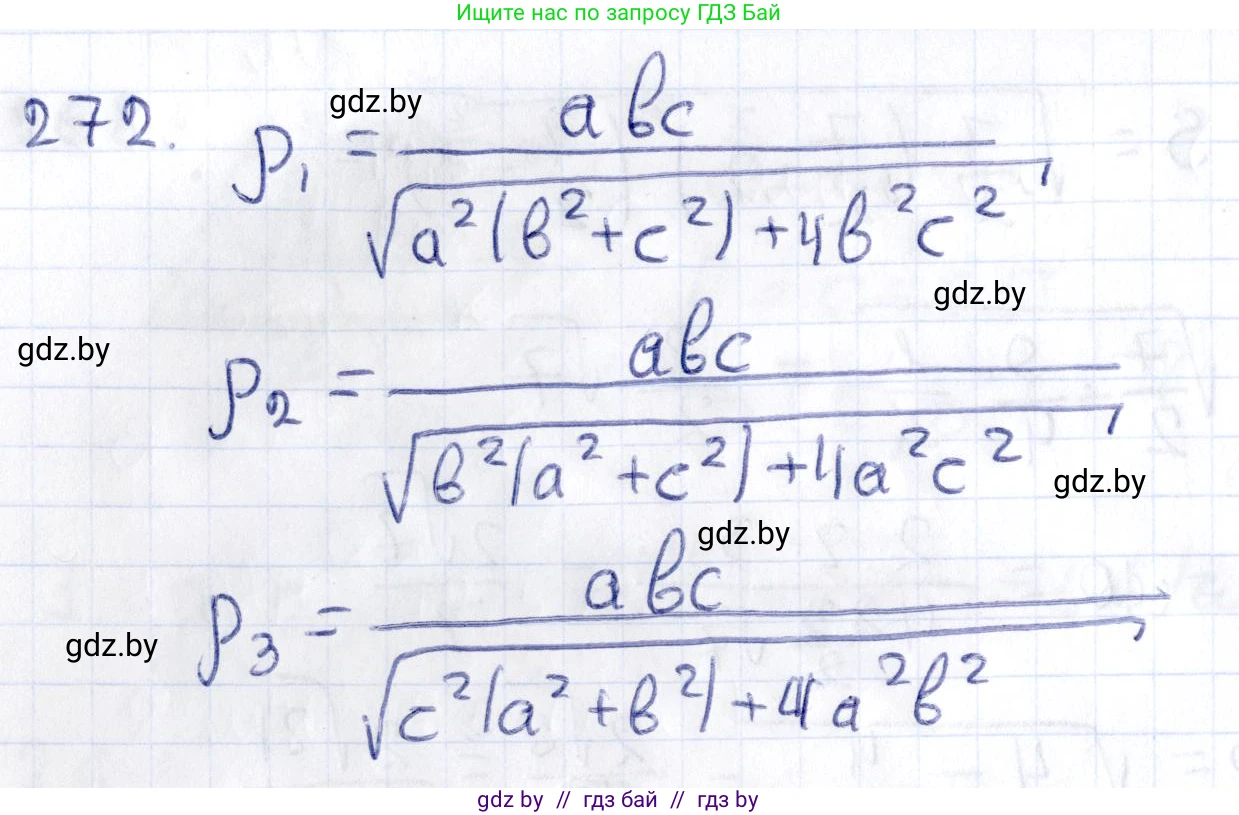 Ищите нас по запросу ГДЗ Бай
gdz.by
272. ρ₁ = aвc / √(a²(в²+c²)+4в²c²)
gdz.by
gdz.by
ρ₂ = aвc / √(в²(a²+c²)+4a²c²)
gdz.by
gdz.by
ρ₃ = aвc / √(c²(a²+в²)+4a²в²)
gdz.by
gdz by // гдз бай // гдз by